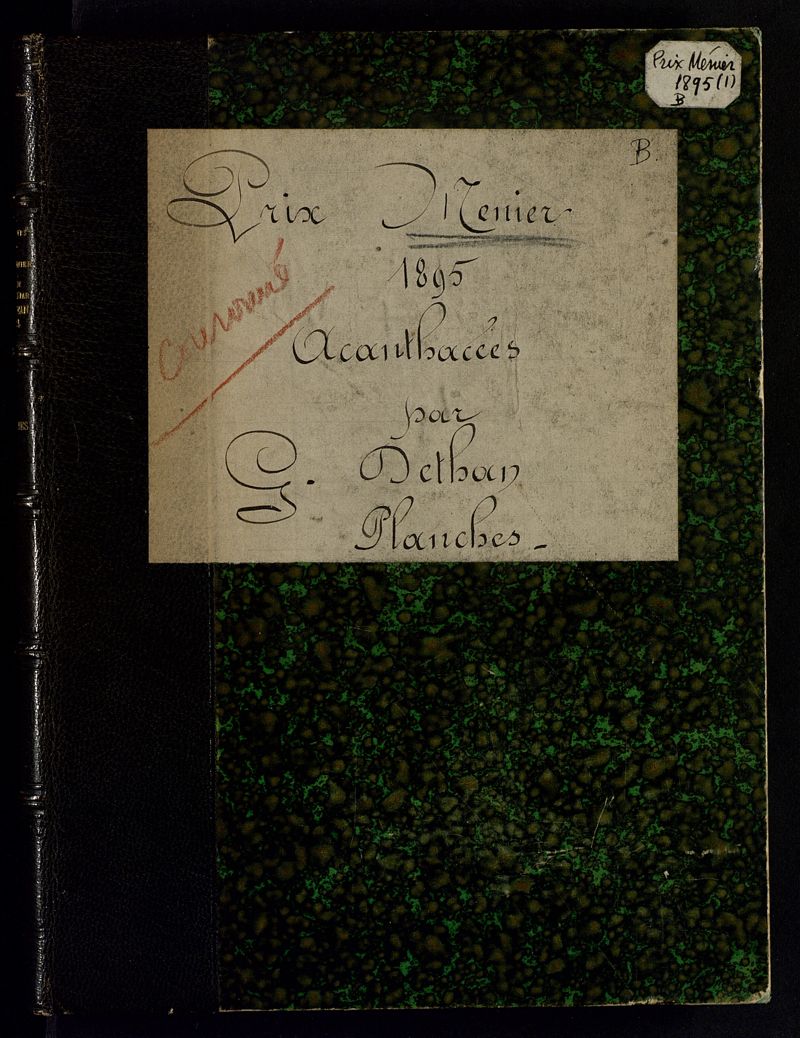 Prix Ménier
1895 (1)
B
B.
Prix Menier
1895
couronné
Acanthacées
par
G. Dethan
Planches_